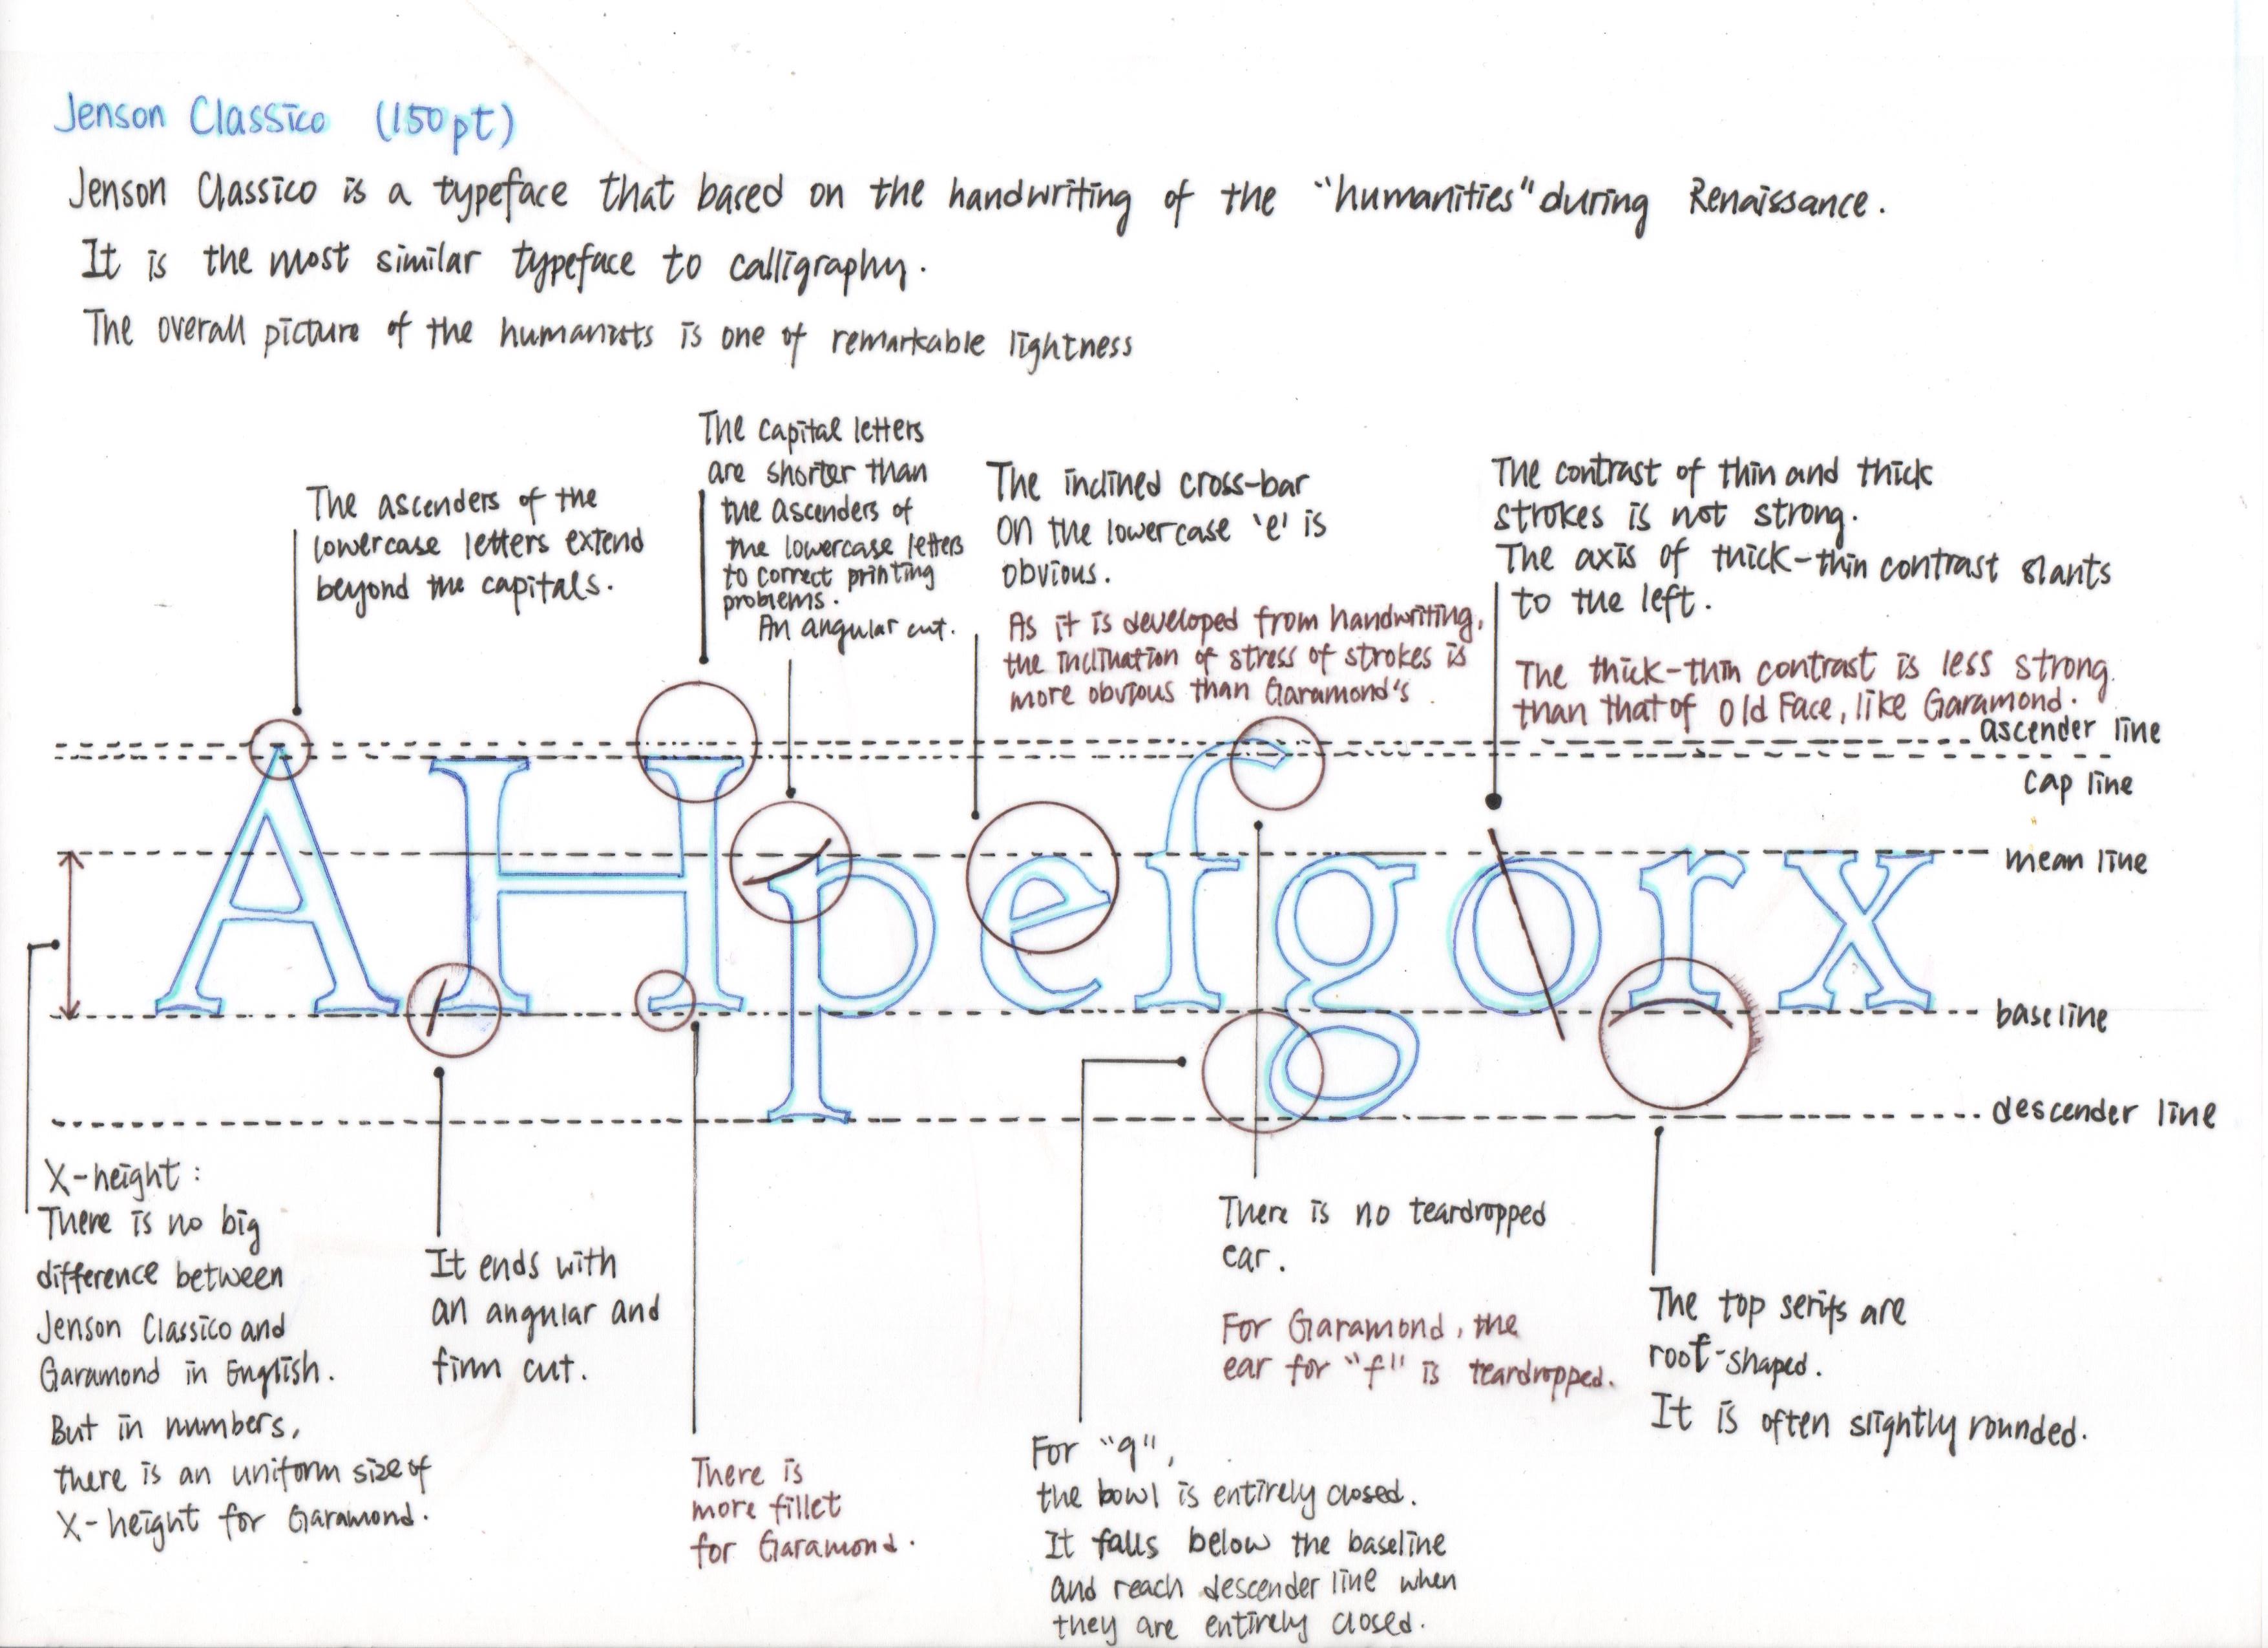 Jenson Classico (150pt)
Jenson Classico is a typeface that based on the handwriting of the "humanities" during Renaissance.
It is the most similar typeface to calligraphy.
The overall picture of the humanists is one of remarkable lightness
The ascenders of the
lowercase letters extend
beyond the capitals.
The capital letters
are shorter than
the ascenders of
the lowercase letters
to correct printing
problems.
An angular cut.
The inclined cross-bar
on the lowercase 'e' is
obvious.
As it is developed from handwriting,
the inclination of stress of strokes is
more obvious than Garamond's
The contrast of thin and thick
strokes is not strong.
The axis of thick-thin contrast slants
to the left.
The thick-thin contrast is less strong
than that of Old Face, like Garamond.
ascender line
cap line
mean line
AHpefgorx
baseline
descender line
X-height:
There is no big
difference between
Jenson Classico and
Garamond in English.
But in numbers,
there is an uniform size of
X-height for Garamond.
It ends with
an angular and
firm cut.
There is
more fillet
for Garamond.
For "g",
the bowl is entirely closed.
It falls below the baseline
and reach descender line when
they are entirely closed.
There is no teardropped
ear.
For Garamond, the
ear for "f" is teardropped.
The top serifs are
roof-shaped.
It is often slightly rounded.